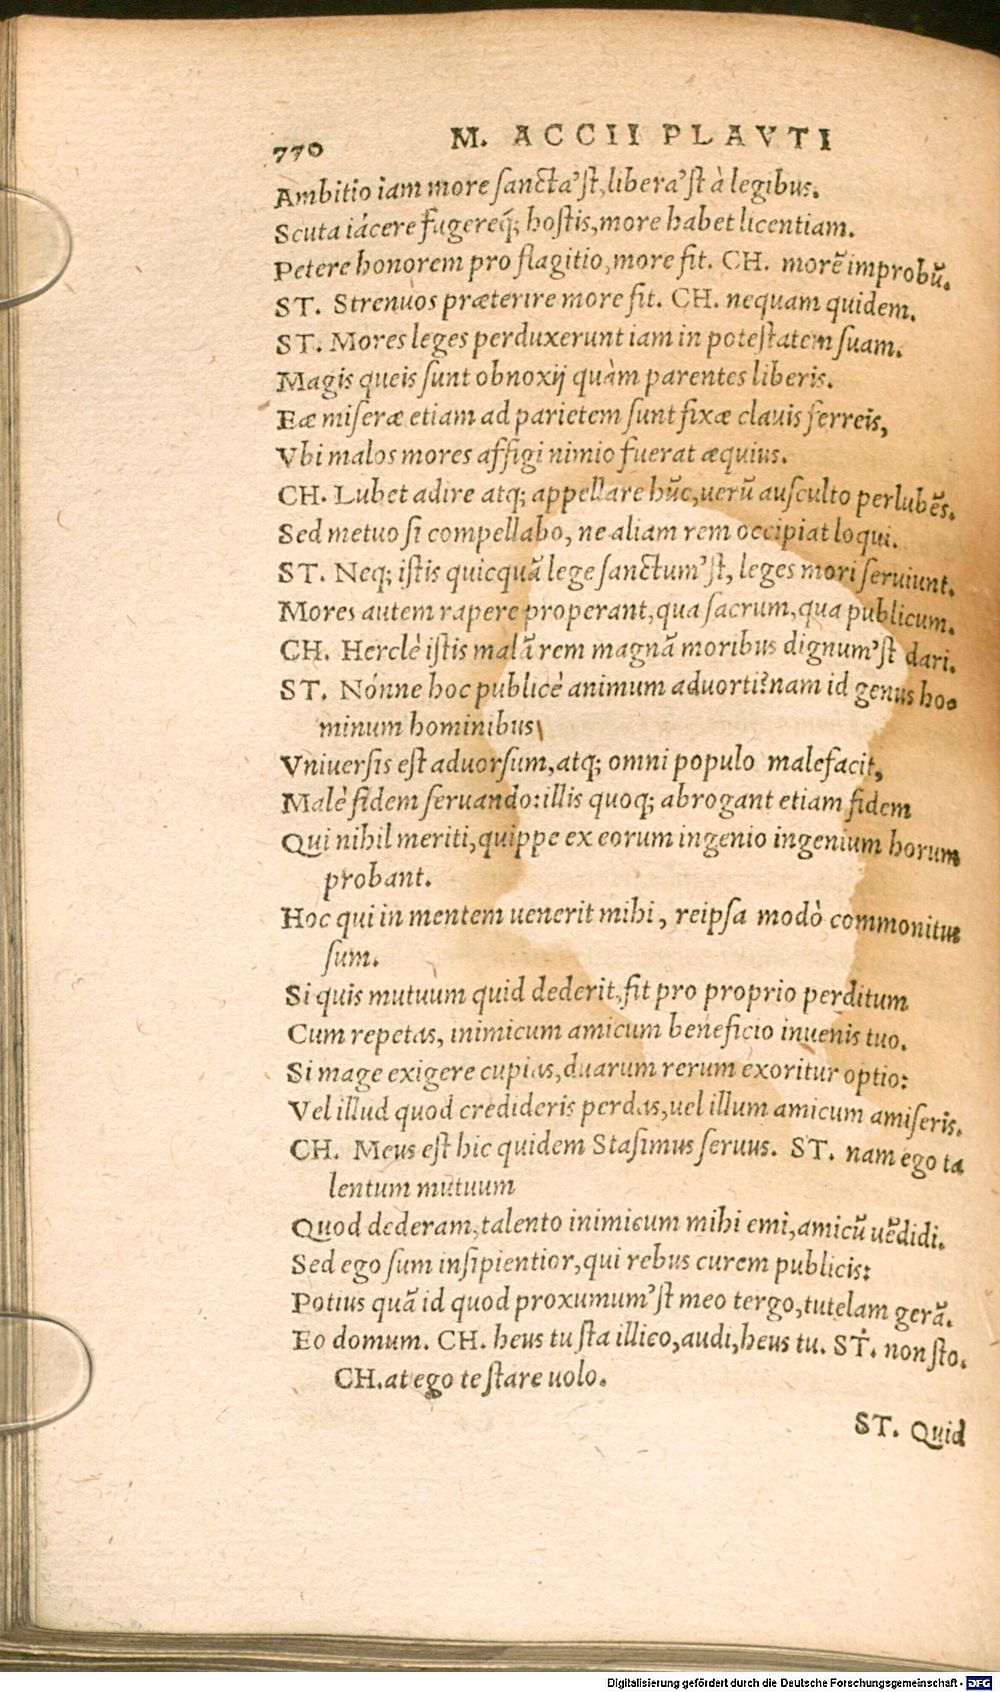 770 M. ACCII PLAVTI
Ambitio iam more sancta'st, libera'st à legibus.
Scuta iácere fugereq́; hostis, more habet licentiam.
Petere honorem pro flagitio, more fit. CH. morē improbū.
ST. Strenuos præterire more fit. CH. nequam quidem.
ST. Mores leges perduxerunt iam in potestatem suam.
Magis queis sunt obnoxij quàm parentes liberis.
Eæ miseræ etiam ad parietem sunt fixæ clauis ferreis,
Vbi malos mores affigi nimio fuerat æquius.
CH. Lubet adire atq; appellare hūc, uerū ausculto perlubēs.
Sed metuo si compellabo, ne aliam rem occipiat loqui.
ST. Neq; istis quicquā lege sanctum'st, leges mori seruiunt.
Mores autem rapere properant, qua sacrum, qua publicum.
CH. Herclè istis malā rem magnā moribus dignum'st dari.
ST. Nónne hoc publicè animum aduorti? nam id genus ho-
minum hominibus
Vniuersis est aduorsum, atq; omni populo malefacit,
Malè fidem seruando: illis quoq; abrogant etiam fidem
Qui nihil meriti, quippe ex eorum ingenio ingenium horum
probant.
Hoc qui in mentem uenerit mihi, reipsa modò commonitus
sum.
Si quis mutuum quid dederit, fit pro proprio perditum
Cum repetas, inimicum amicum beneficio inuenis tuo.
Si mage exigere cupias, duarum rerum exoritur optio:
Vel illud quod credideris perdas, uel illum amicum amiseris.
CH. Meus est hic quidem Stasimus seruus. ST. nam ego ta
lentum mutuum
Quod dederam, talento inimicum mihi emi, amicū uēdidi.
Sed ego sum insipientior, qui rebus curem publicis:
Potius quā id quod proxumum'st meo tergo, tutelam gerā.
Eo domum. CH. heus tu sta illico, audi, heus tu. ST. non sto.
CH. at ego te stare uolo.
ST. Quid
Digitalisierung gefördert durch die Deutsche Forschungsgemeinschaft - DFG